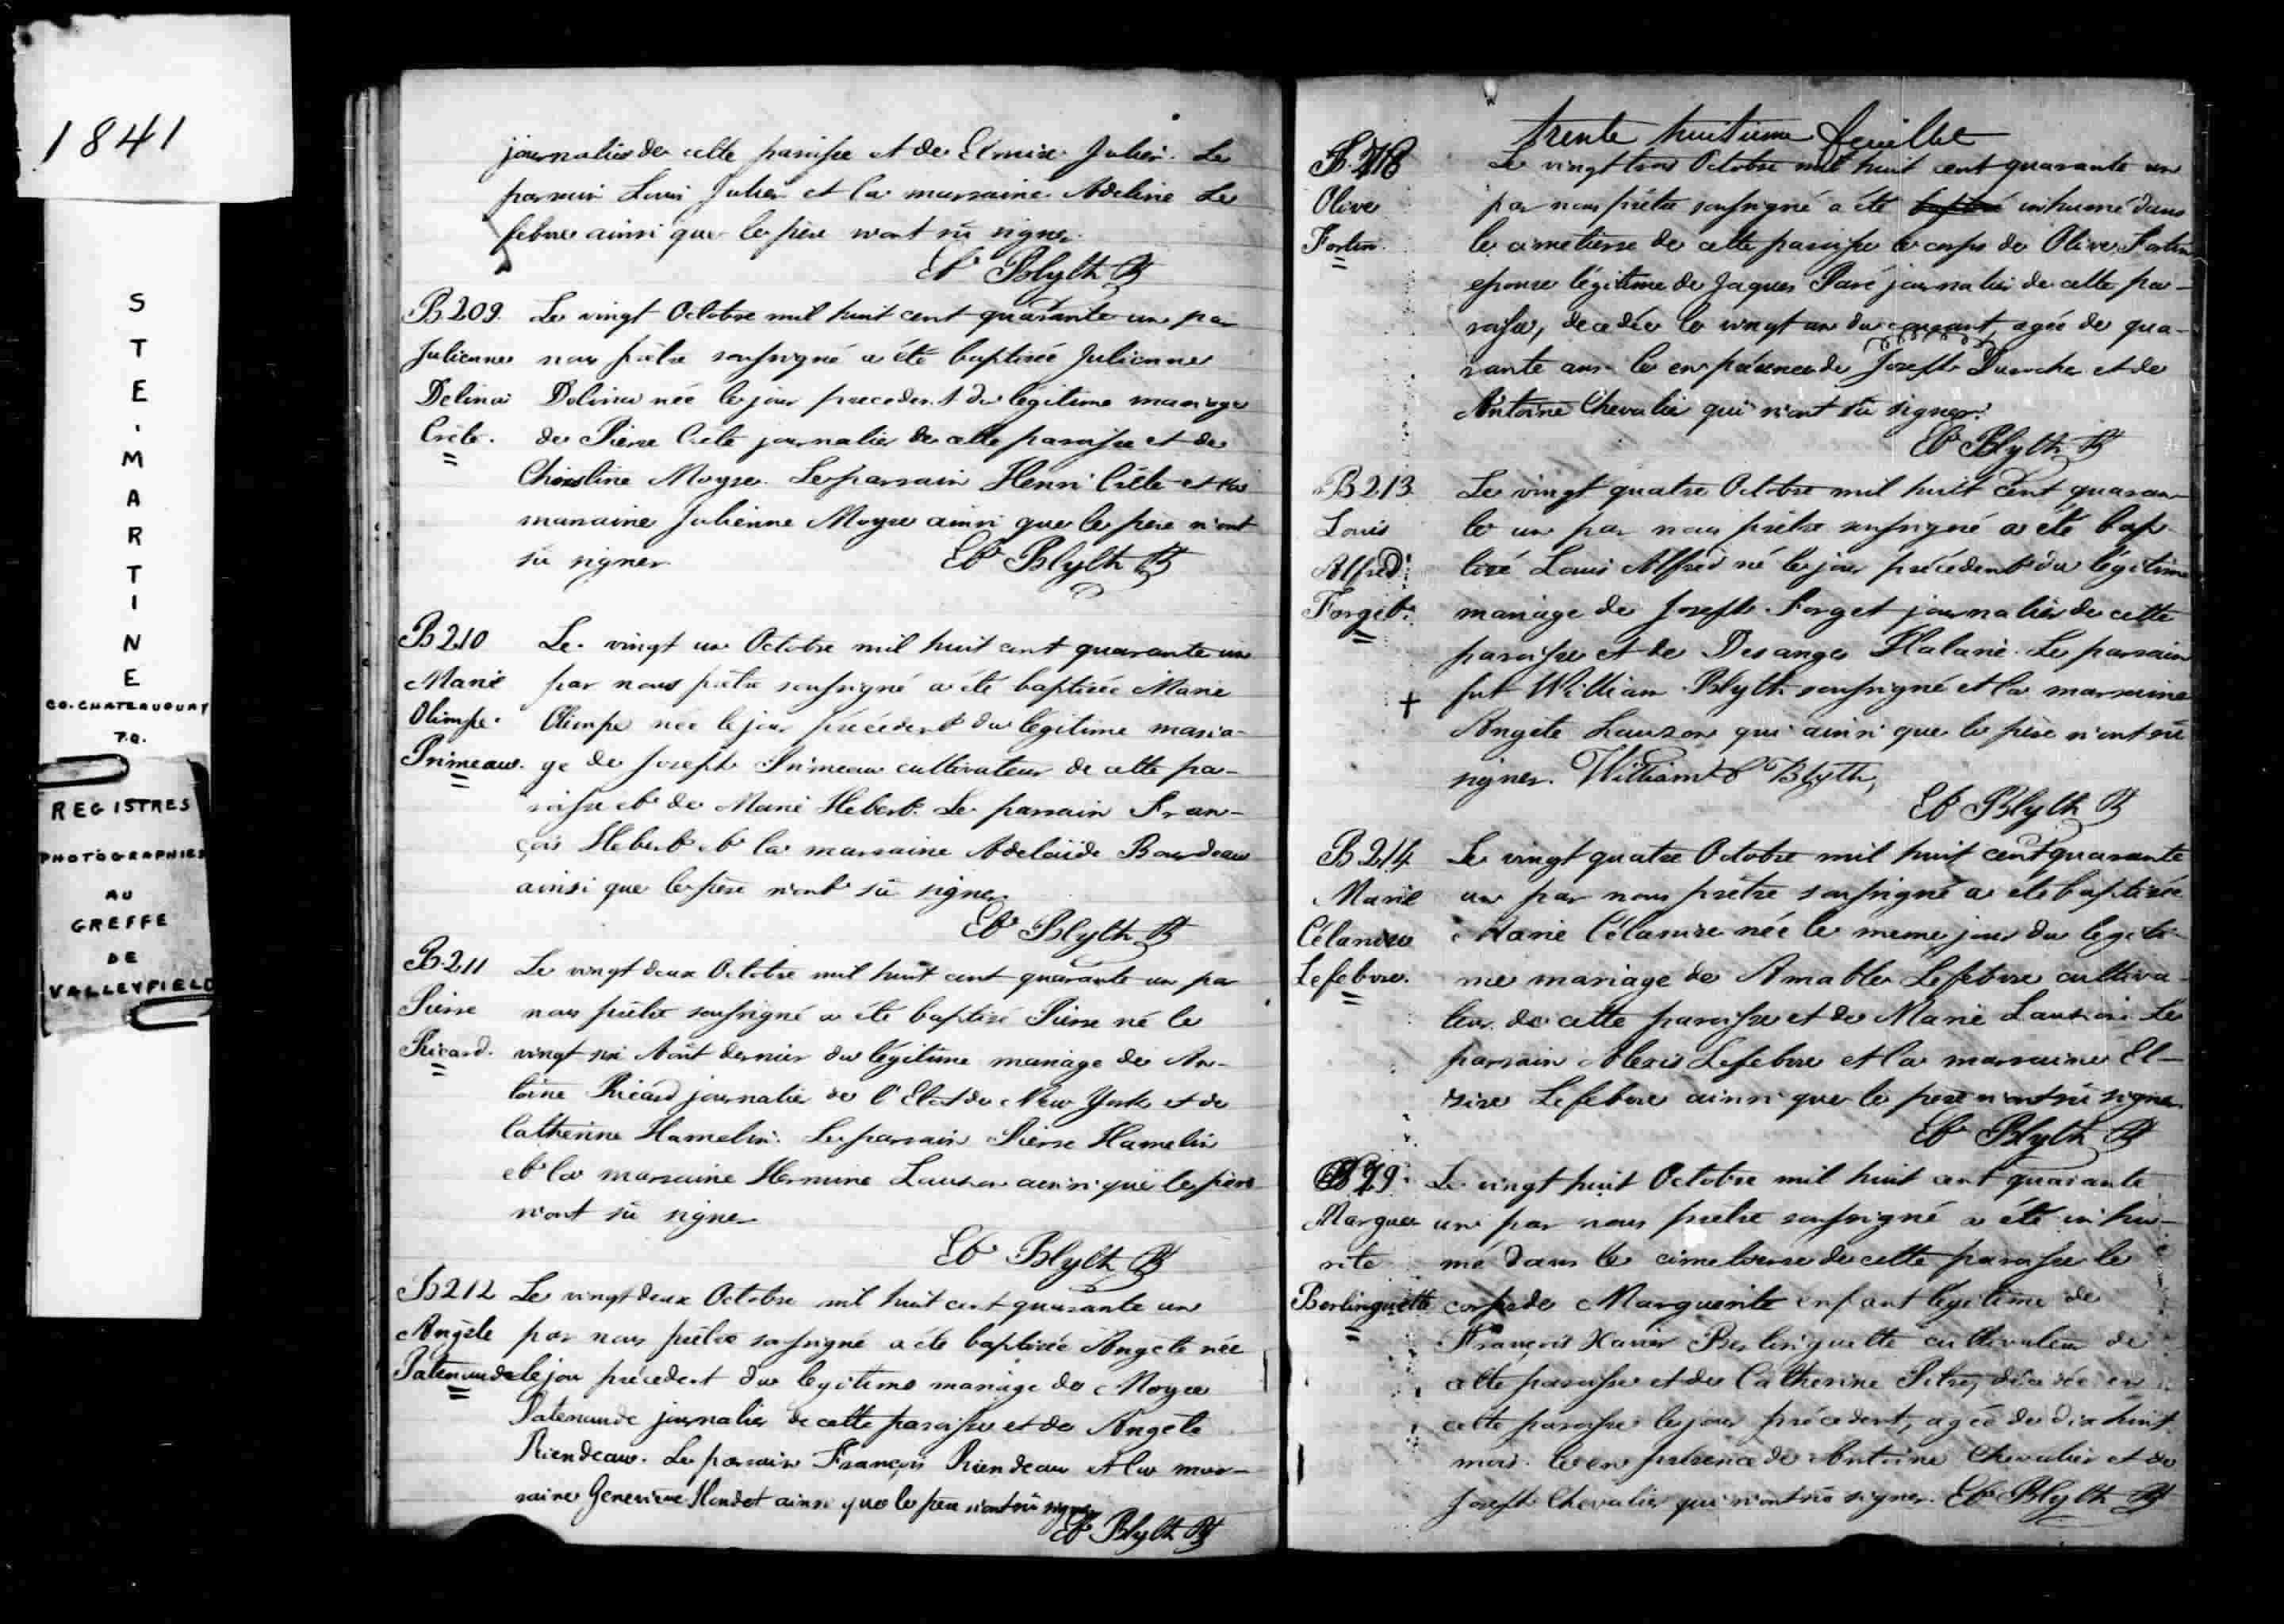 1841
STE. MARTINE
CO. CHATEAUGUAY
P.Q.
REGISTRES
PHOTOGRAPHIES
AU
GREFFE
DE
VALLEYFIELD
journalier de cette paroisse et de Julien. Le
parrain Louis Julien et la marraine Adeline Le
febvre ainsi que le père n'ont sû signer.
Et Blyth Pt
B209
Julienne
Delina
Crête.
Le vingt Octobre mil huit cent quarante un par
nous prêtre soussigné a été baptisée Julienne
Delina née le jour precedent du legitime mariage
de Pierre Crete journalier de cette paroisse et de
Christine Moyse. Le parrain Henri Crête et la
marraine Julienne Moyse ainsi que le père n'ont
sû signer
Et Blyth Pt
B210
Marie
Olimpe
Primeau
Le vingt un Octobre mil huit cent quarante un
par nous prêtre soussigné a été baptisée Marie
Olimpe née le jour précédent du légitime maria-
ge de Joseph Primeau cultivateur de cette pa-
roisse et de Marie Hebert. Le parrain Fran-
çois Hebert et la marraine Adelaïde Bourdeau
ainsi que le père n'ont sû signer.
Et Blyth Pt
B.211
Pierre
Ricard.
Le vingt deux Octobre mil huit cent quarante un par
nous prêtre soussigné a été baptisé Pierre né le
vingt six Août dernier du légitime mariage de An-
toine Ricard journalier de l'Etat de New York et de
Catherine Hamelin. Le parrain Pierre Hamelin
et la marraine Hermine Lauzon ainsi que le père
n'ont sû signer
Et Blyth Pt
B212
Angèle
Patenaude
Le vingt deux Octobre mil huit cent quarante un
par nous prêtre soussigné a été baptisée Angèle née
le jour précedent du legitime mariage de Moyse
Patenaude journalier de cette paroisse et de Angèle
Riendeau. Le parrain François Riendeau et la mar-
raine Genevieve ainsi que le père n'ont sû signer
Et Blyth Pt
trente huitieme feuillet
Olive
Fortin.
Le vingt trois Octobre mil huit cent quarante un
par nous prêtre soussigné a été inhumé dans
le cimetierre de cette paroisse le corps de Olive Fortin
epouse légitime de Jaques Paré journalier de cette pa-
roisse, decedée le vingt un du courant, agée de qua-
rante ans. Ce en présence de Joseph Durocher et de
Antoine Chevalier qui n'ont sû signer.
Et Blyth Pt
B213
Louis
Alfred
Forget.
Le vingt quatre Octobre mil huit cent quaran-
te un par nous prêtre soussigné a été bap-
tisé Louis Alfred né le jour précédent du légitime
mariage de Joseph Forget journalier de cette
paroisse et de Desanges Le parrain
fut William Blyth soussigné et la marraine
Angèle Lauzon qui ainsi que le père n'ont sû
signer. William Blyth,
Et Blyth Pt
B214
Marie
Célanire
Lefebvre.
Le vingt quatre Octobre mil huit cent quarante
un par nous prêtre soussigné a été baptisée
Marie Célanire née le meme jour du legiti-
me mariage de Amable Lefebvre cultiva-
teur de cette paroisse et de Marie Lauzon. Le
parrain Alexis Lefebvre et la marraine El-
zire Lefebvre ainsi que le père n'ont sû signer
Et Blyth Pt
Margue-
rite
Berlinguette
Le vingt huit Octobre mil huit cent quarante
un par nous prêtre soussigné a été inhu-
mé dans le cimetierre de cette paroisse le
corps de Marguerite enfant légitime de
François Xavier Berlinguette cultivateur de
cette paroisse et de Catherine Pitre, décédée en
cette paroisse le jour précedent, agée de dix huit
mois. Ce en présence de Antoine Chevalier et de
Joseph Chevalier qui n'ont sû signer. Et Blyth Pt